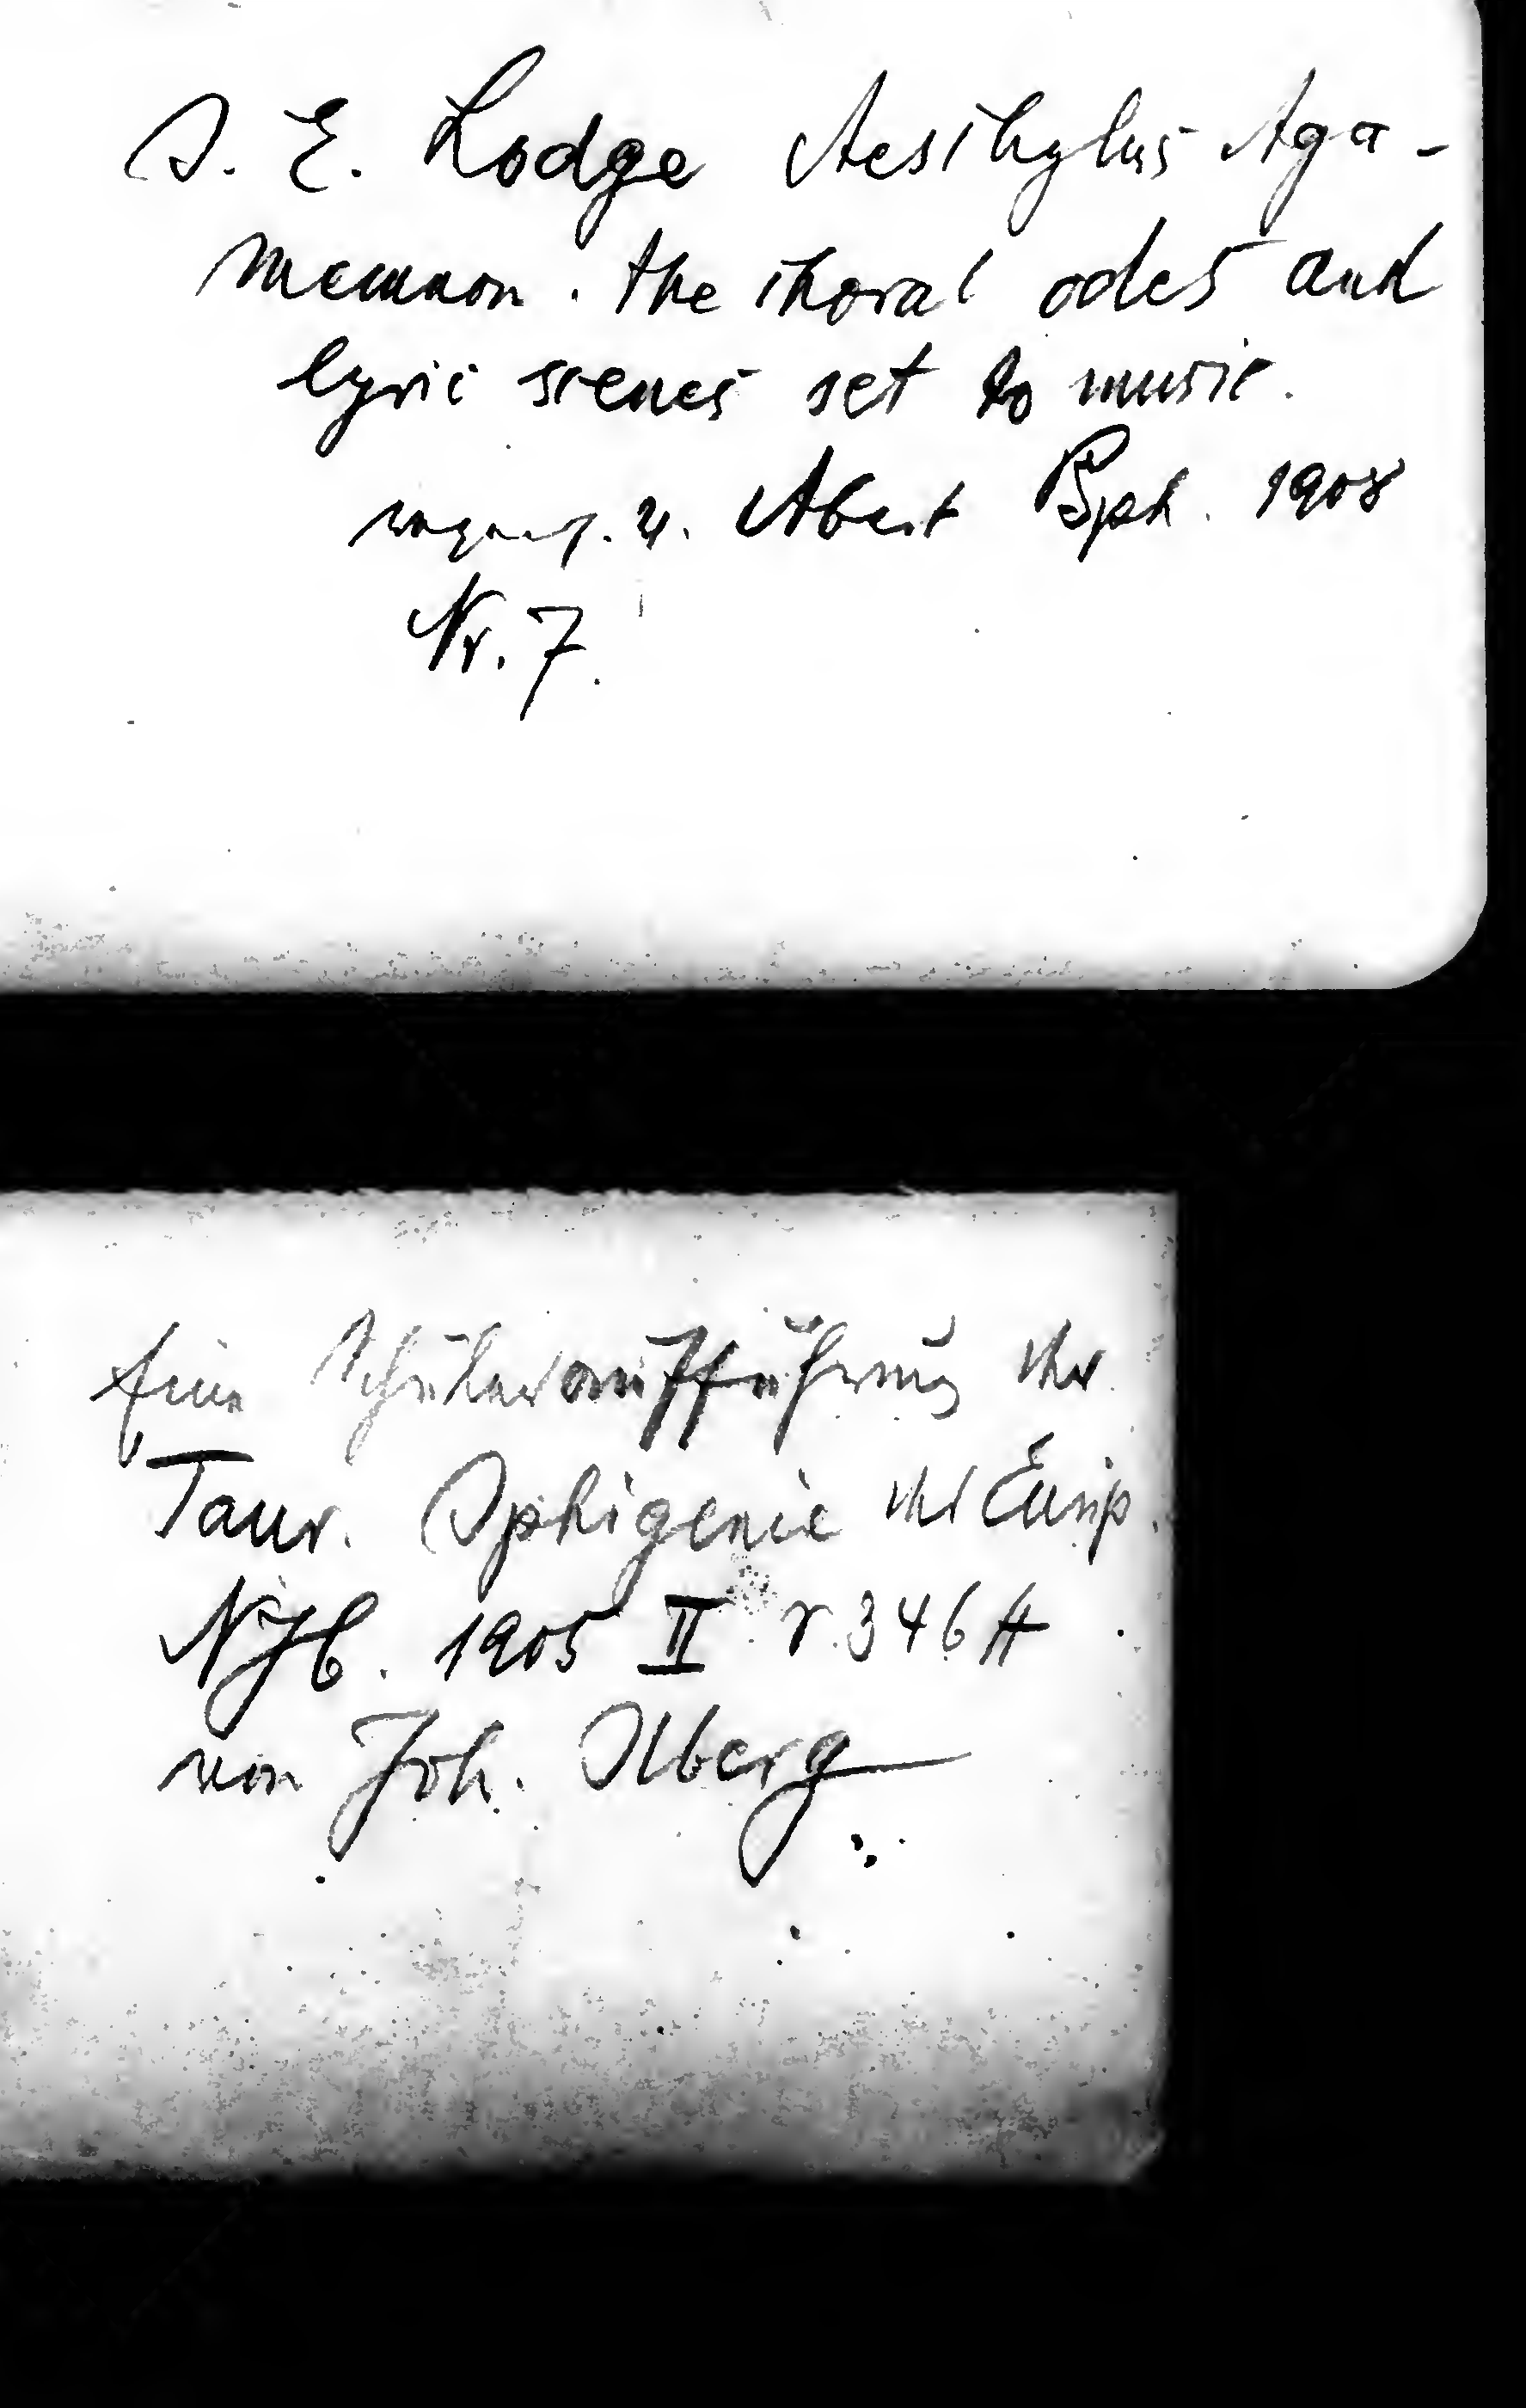 J. E. Lodge Aeschylus Aga-
memnon. the choral odes and
lyric scenes set to music.
v. Abert BphW. 1908
Nr. 7.
Eine Schüleraufführung der
Taur. Iphigenie des Eurip.
NJb. 1905 II S. 346 ff
von Joh. Ilberg